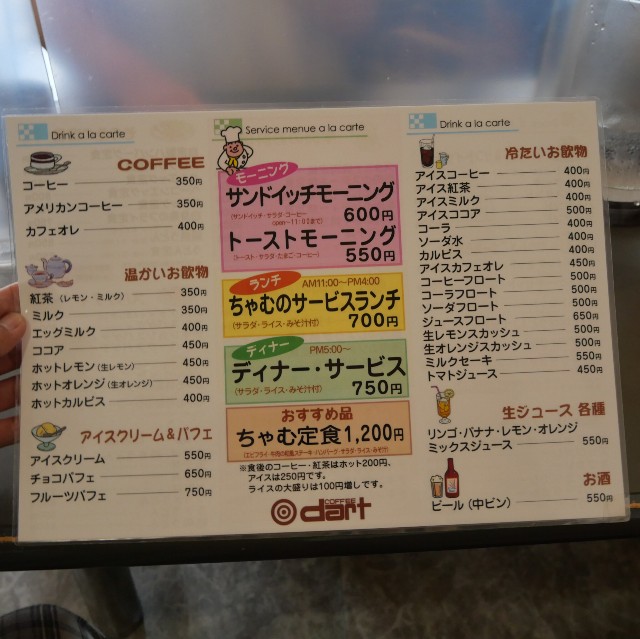 Drink a la carte
COFFEE
コーヒー 350円
アメリカンコーヒー 350円
カフェオレ 400円
温かいお飲物
紅茶（レモン・ミルク） 350円
ミルク 350円
エッグミルク 400円
ココア 450円
ホットレモン（生レモン） 450円
ホットオレンジ（生オレンジ） 450円
ホットカルピス 400円
アイスクリーム＆パフェ
アイスクリーム 550円
チョコパフェ 650円
フルーツパフェ 750円
Service menue a la carte
モーニング
サンドイッチモーニング
（サンドイッチ・サラダ・コーヒー
open～11:0迄まで） 600円
トーストモーニング
（トースト・サラダ・たまご・コーヒー） 550円
ランチ AM11:00～PM4:00
ちゃむのサービスランチ
（サラダ・ライス・みそ汁付） 700円
ディナー PM5:00～
ディナー・サービス
（サラダ・ライス・みそ汁付） 750円
おすすめ品
ちゃむ定食1,200円
（エビフライ・牛肉の和風ステーキ・ハンバーグ・サラダ・ライス・みそ汁）
※食後のコーヒー・紅茶はホット200円、
アイスは250円です。
ライスの大盛りは100円増しです。
COFFEE
dart
Drink a la carte
冷たいお飲物
アイスコーヒー 400円
アイス紅茶 400円
アイスミルク 400円
アイスココア 500円
コーラ 400円
ソーダ水 400円
カルピス 400円
アイスカフェオレ 450円
コーヒーフロート 500円
コーラフロート 500円
ソーダフロート 500円
ジュースフロート 650円
生レモンスカッシュ 500円
生オレンジスカッシュ 500円
ミルクセーキ 550円
トマトジュース 450円
生ジュース 各種
リンゴ・バナナ・レモン・オレンジ
ミックスジュース 550円
お酒
ビール（中ビン） 550円